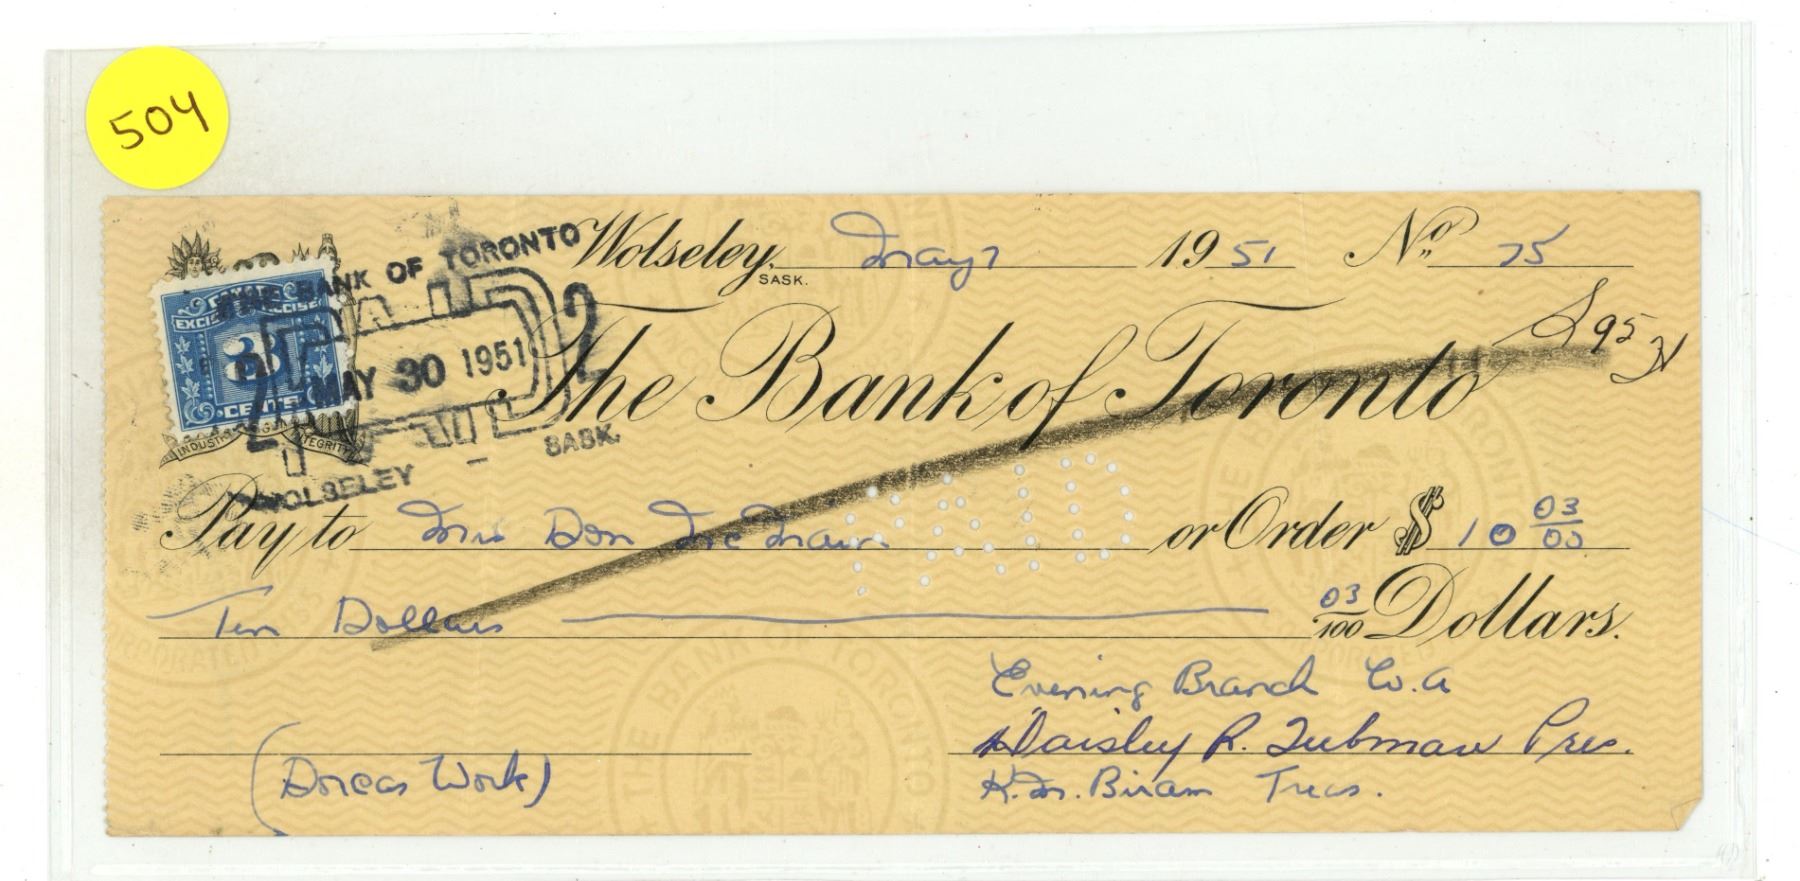 504
Wolseley, SASK. May 7 1951 No 75
THE BANK OF TORONTO
PAID
MAY 30 1951
WOLSELEY - SASK.
EXCISE
3
CENTS
INDUSTRY INTEGRITY
The Bank of Toronto
PAID
Pay to Mrs Don or Order $ 10 03/00
Ten Dollars 03/100 Dollars.
Evening Branch W.A
Daisley R. Tubman Pres.
(Dorcas Work)
K.M. Biram Treas.
THE BANK OF TORONTO
INCORPORATED